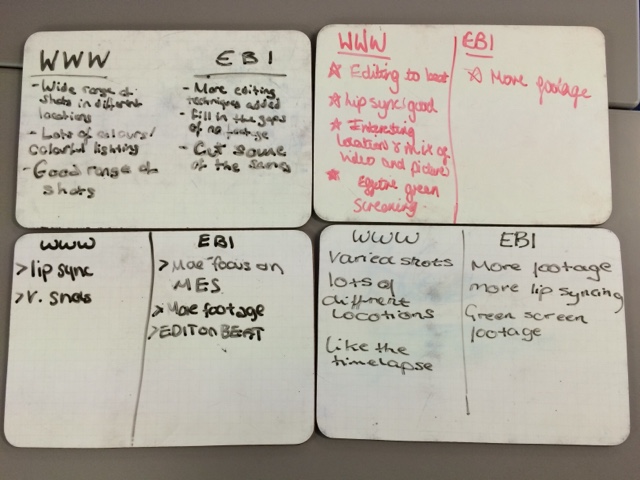 WWW
- Wide range of
shots in different
locations
- Lots of colours/
colorful lighting
- Good range of
shots
EBI
- More editing
techniques added
- Fill in the gaps
of no footage
- Cut some
of the
WWW
Editing to beat
lip sync/good
Interesting
locations & mix of
video and pictures
green
screening
EBI
More footage
WWW
> lip sync
> V. shots
EBI
> More focus on
MES
> More footage
> EDIT ON BEAT
WWW
Varied shots
lots of
different
Locations
Like the
timelapse
EBI
More footage
more lip syncing
Green screen
footage